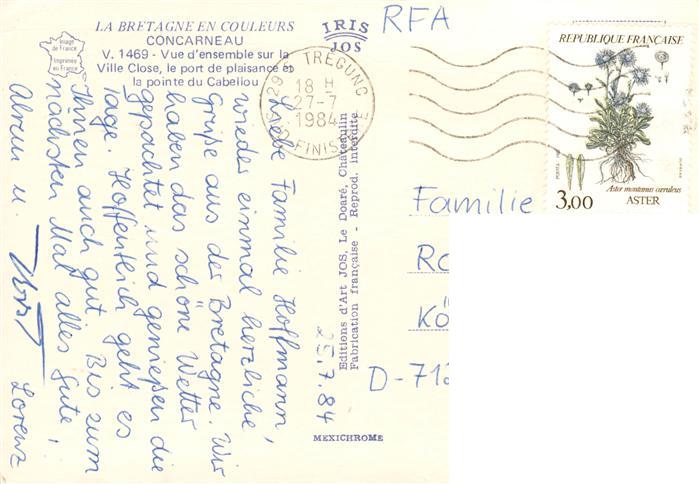 LA BRETAGNE EN COULEURS
CONCARNEAU
V. 1469 - Vue d'ensemble sur la
Ville Close, le port de plaisance et
la pointe du Cabellou
Image
de France
Imprimée
en France
IRIS
JOS
29 TREGUNC
18 H
27-7
1984
FINISTERE
RFA
REPUBLIQUE FRANÇAISE
Aster montanus caeruleus
3,00 ASTER
25.7.84
Liebe Familie Hoffmann,
wieder einmal herzliche
Grüße aus der Bretagne. Wir
haben das schöne Wetter
gepachtet und genießen die
Tage. Hoffentlich geht es
Ihnen auch gut. Bis zum
nächsten Mal alles Gute,
u.
Horst
Lorenz
Editions d'Art JOS, Le Doaré, Châteaulin
Fabrication française - Reprod. interdite
MEXICHROME
Familie
Ro
Kö
D-713